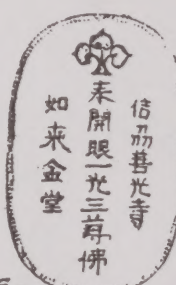 信刕善光寺
未開眼一光三尊佛
如来金堂